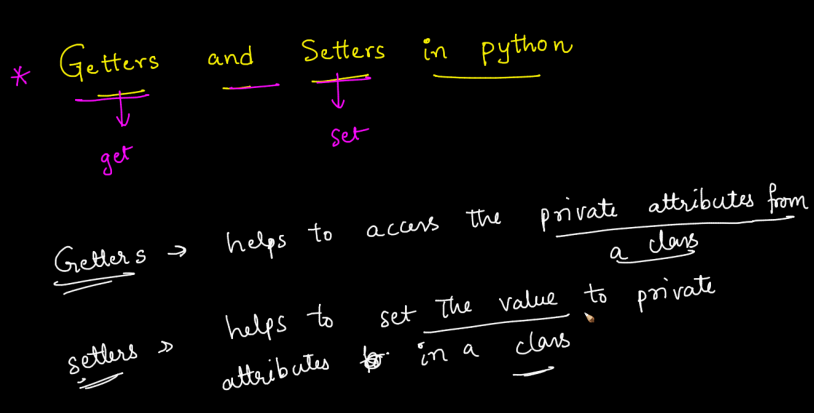 * Getters and Setters in python
get set
Getters → helps to access the private attributes from
a class
setters → helps to set the value to private
attributes in a class